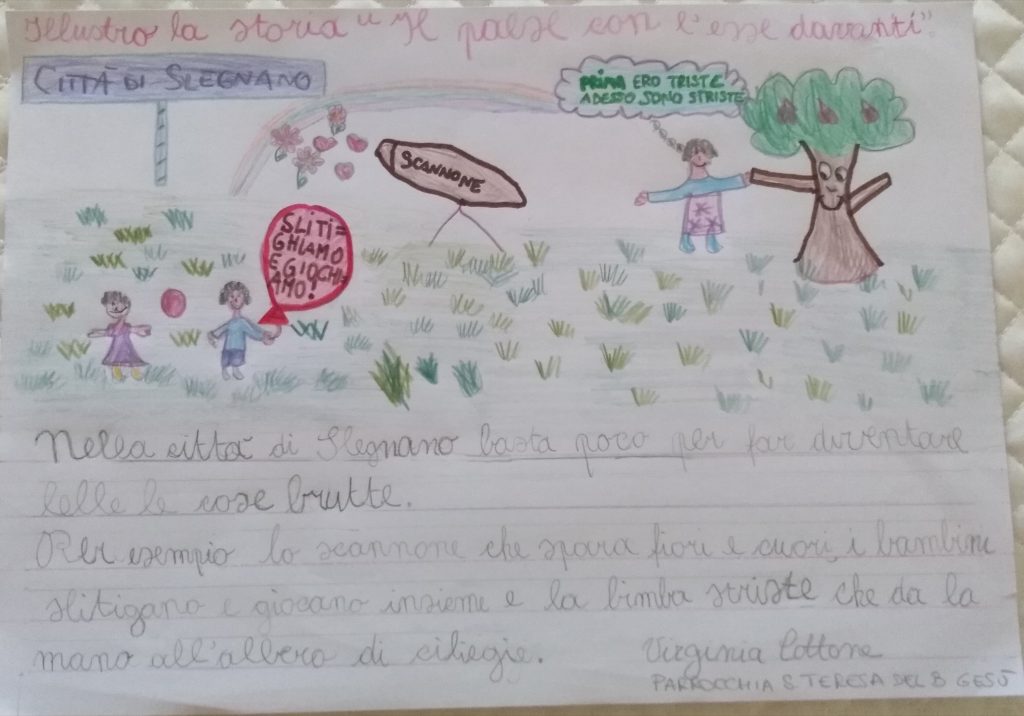 Illustro la storia "Il paese con l'esse davanti".
CITTÀ DI SLEGNANO
PRIMA ERO TRISTE
ADESSO SONO STRISTE
SCANNONE
SLITI=
GHIAMO
E GIOCHI
AMO!
Nella città di Slegnano basta poco per far diventare
belle le cose brutte.
Per esempio lo scannone che spara fiori e cuori, i bambini
slitigano e giocano insieme e la bimba striste che da la
mano all'albero di ciliegie.
Virginia Cottone
PARROCCHIA S. TERESA DEL B GESÙ